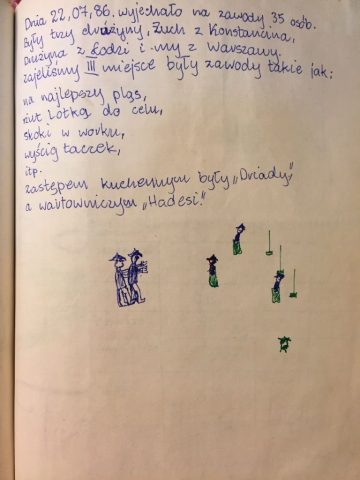 Dnia 22,07,86. wyjechało na zawody 35 osób.
Były trzy drużyny, Zuch z Konstancina,
Drużyna z Łodzi i my z Warszawy.
zajeliśmy III miejsce były zawody takie jak:
na najlepszy pląs,
rzut lotką do celu,
skoki w worku,
wyścig taczek,
itp.
zastępem kuchennym były „Driady”
a wartowniczym „Hadesi.”